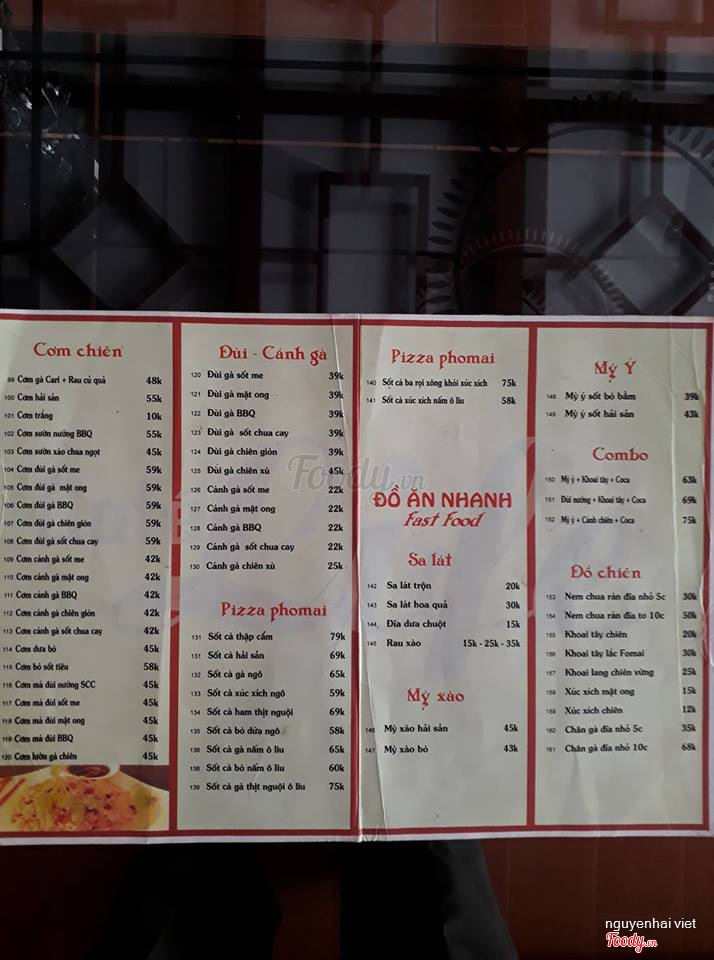 Cơm chiên
99 Cơm gà Cari + Rau củ quả 48k
100 Cơm hải sản 55k
101 Cơm trắng 10k
102 Cơm sườn nướng BBQ 55k
103 Cơm sườn xào chua ngọt 45k
104 Cơm đùi gà sốt me 59k
105 Cơm đùi gà mật ong 59k
106 Cơm đùi gà BBQ 59k
107 Cơm đùi gà chiên giòn 59k
108 Cơm đùi gà sốt chua cay 59k
109 Cơm cánh gà sốt me 42k
110 Cơm cánh gà mật ong 42k
111 Cơm cánh gà BBQ 42k
112 Cơm cánh gà chiên giòn 42k
113 Cơm cánh gà sốt chua cay 42k
114 Cơm dưa bò 45k
115 Cơm bò sốt tiêu 58k
116 Cơm má đùi nướng SCC 45k
117 Cơm má đùi sốt me 45k
118 Cơm má đùi mật ong 45k
119 Cơm má đùi BBQ 45k
120 Cơm lườn gà chiên 45k
Đùi - Cánh gà
120 Đùi gà sốt me 39k
121 Đùi gà mật ong 39k
122 Đùi gà BBQ 39k
123 Đùi gà sốt chua cay 39k
124 Đùi gà chiên giòn 39k
125 Đùi gà chiên xù 45k
126 Cánh gà sốt me 22k
127 Cánh gà mật ong 22k
128 Cánh gà BBQ 22k
129 Cánh gà sốt chua cay 22k
130 Cánh gà chiên xù 25k
Pizza phomai
131 Sốt cà thập cẩm 79k
131 Sốt cà hải sản 69k
132 Sốt cà gà ngô 65k
133 Sốt cà xúc xích ngô 59k
134 Sốt cà ham thịt nguội 69k
135 Sốt cà bò dứa ngô 58k
136 Sốt cà gà nấm ô liu 65k
138 Sốt cà bò nấm ô liu 60k
139 Sốt cà gà thịt nguội ô liu 75k
Pizza phomai
140 Sốt cà ba rọi xông khói xúc xích 75k
141 Sốt cà xúc xích nấm ô liu 58k
ĐỒ ĂN NHANH
Fast Food
Sa lát
142 Sa lát trộn 20k
143 Sa lát hoa quả 30k
144 Đĩa dưa chuột 15k
145 Rau xào 15k - 25k - 35k
Mỳ xào
146 Mỳ xào hải sản 45k
147 Mỳ xào bò 43k
Mỳ Ý
148 Mỳ ý sốt bò bằm 39k
149 Mỳ ý sốt hải sản 43k
Combo
150 Mỳ ý + Khoai tây + Coca 63k
151 Đùi nướng + Khoai tây + Coca 69k
152 Mỳ ý + Cánh chiên + Coca 75k
Đồ chiên
153 Nem chua rán đĩa nhỏ 5c 30k
154 Nem chua rán đĩa to 10c 50k
155 Khoai tây chiên 20k
156 Khoai tây lắc Fomai 30k
157 Khoai lang chiên vừng 25k
158 Xúc xích mật ong 15k
159 Xúc xích chiên 12k
160 Chân gà đĩa nhỏ 5c 35k
161 Chân gà đĩa nhỏ 10c 68k
Foody.vn
nguyenhai viet
Foody.vn